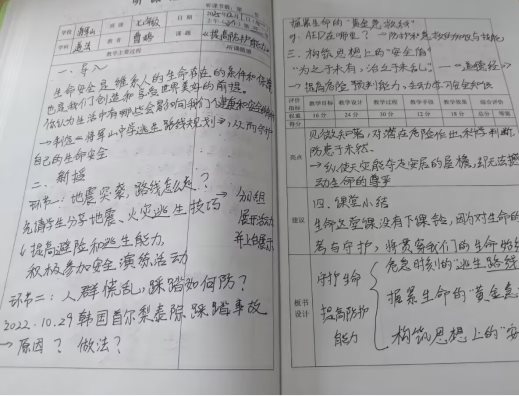 听课
学校
班级
七年级
日期
听课节数：第
学科 道法
教者
课题
《提高防护能力》
教学主要过程
听课随想
一、导入
生命安全是维系人的生命存在的条件和保障
也是我们创造和享受世界美好的前提。
你认为生活中有哪些会影响我们的健康和安全的
→制作《将军山中学逃生路线规划》，从而守护
自己的生命安全
二、新授
环节一：地震突袭，路线怎么走？
先请学生分享地震、火灾逃生技巧 → 分小组
展开活动
并上台展示
提高避险和逃生能力，
积极参加安全演练活动
环节二：人群慌乱，踩踏如何防？
2022.10.29韩国首尔梨泰院踩踏事故
→原因？做法？
握紧生命的"黄金急救种"
AED在哪里？→
三、构筑思想上的"安全值"
"为之于未有，治之于未乱"——《道德经》
→提高危险预判能力，主动学习安全知识
评价指标 教学目标 教学设计 教学过程 教学手段 教学效果 综合评价
权重 16分 24分 30分 12分 18分 总分 等第
得分
亮点
见微知著，对潜在危险作出科学判断
防患于未然。
→纵使天空能夺走安居的屋檐，却无法撼
动生命的尊严
建议
四、课堂小结
生命这堂课没有下课铃，因为对生命的
与守护，将贯穿我们的生命始
板书设计
守护生命
提高防护
能力
危急时刻的逃生路线
握紧生命的"黄金急
构筑思想上的"安